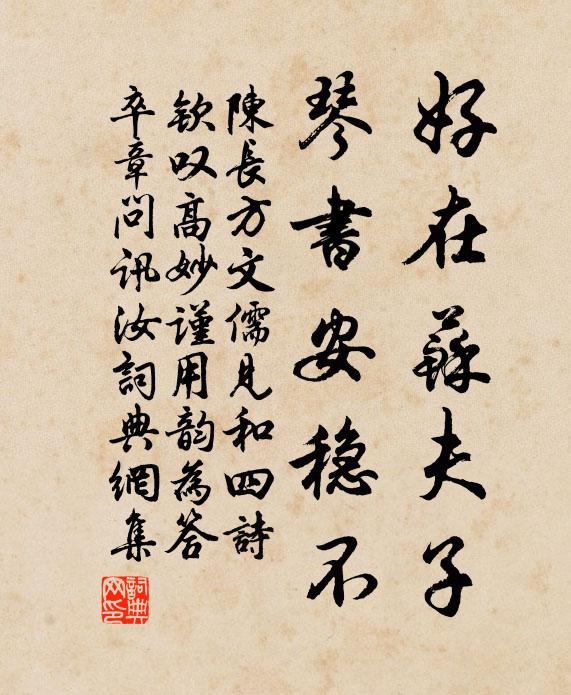 好在蘇夫子
琴書安穩不
陳長方文儒見和四詩
欽叹高妙謹用韵為答
卒章問訊汝詞典網集
詞典